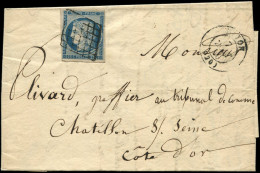 Mon
Plivard, greffier au tribunal de comme
Chatillon s/ Seine
Côte d'or